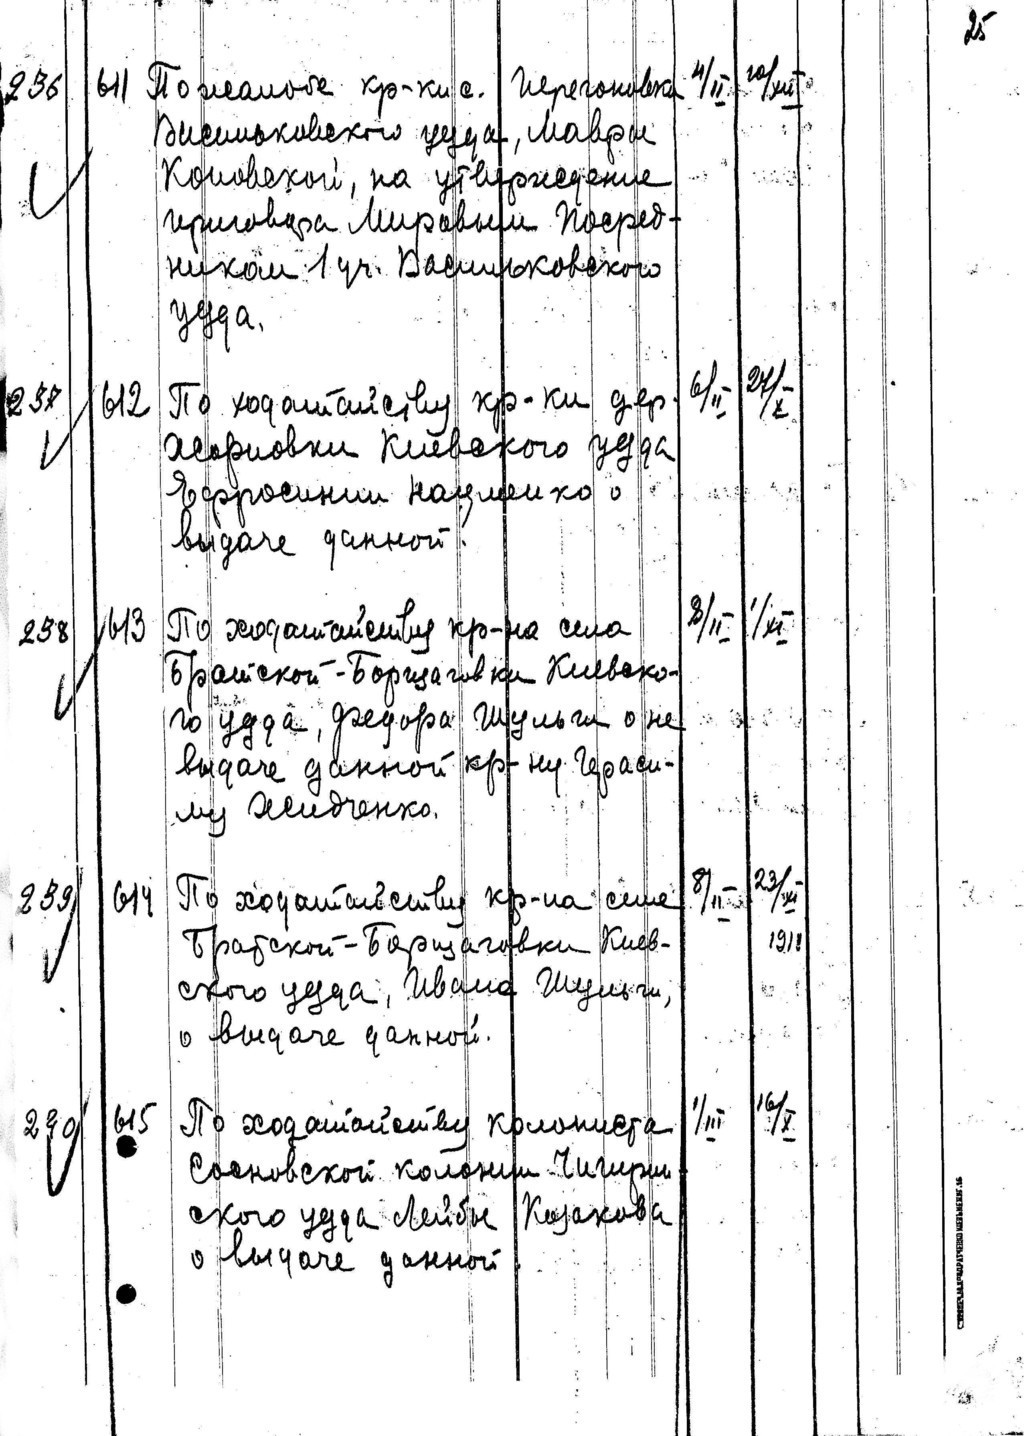 25
236 611 По жалобе кр-ки с. Перегоновка 4/II 20/XII
Васильковского уезда, Мавры
Коновской, на утверждение
приговора Мировым Посред-
ником 1 уч. Васильковского
уезда.
237 612 По ходатайству кр-ки дер. 6/II 27/X
Жорновки Киевского уезда
Ефросинии Науменко о
выдаче данной.
238 613 По ходатайству кр-на села 8/II 1/XI
Братской-Борщаговки Киевско-
го уезда, Федора Шульги о не
выдаче данной кр-ну Гераси-
му Жидченко.
239 614 По ходатайству кр-на села 8/II 23/XI
Братской-Борщаговки Киев- 1911
ского уезда, Ивана Шульги,
о выдаче данной.
240 615 По ходатайству колониста 1/III 16/X
Сосновской колонии Чигирин-
ского уезда Лейбы Казакова
о выдаче данной.